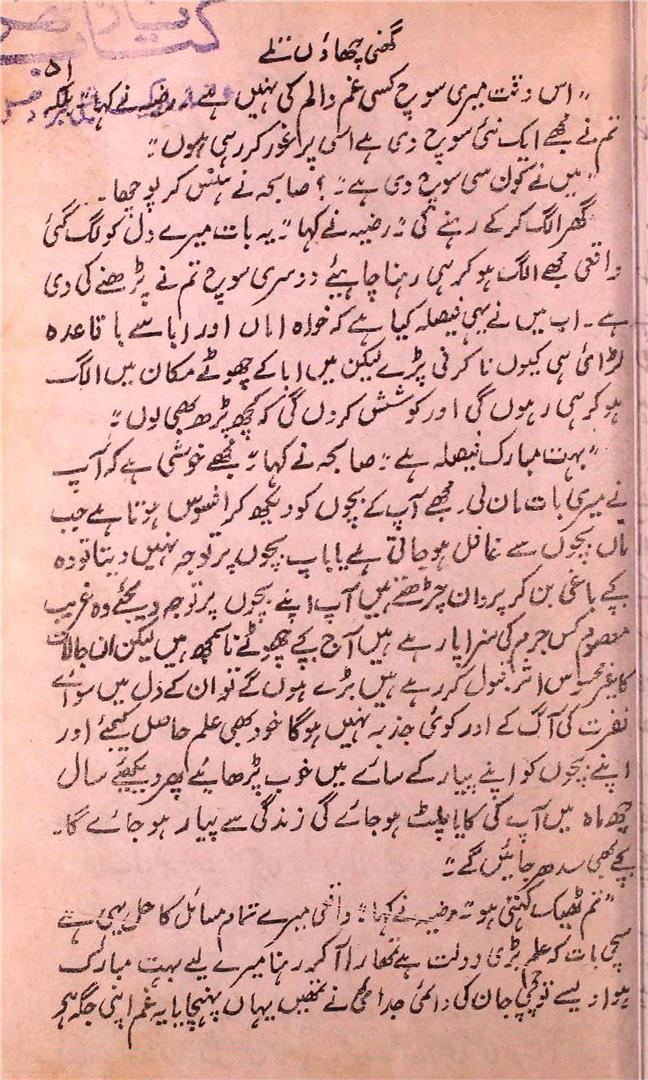 گھنی چھاؤں تلے
۵۱
"اس وقت میری سوچ کسی غم والم کی نہیں ہے" رضیہ نے کہا "بلکہ
تم نے مجھے ایک نئی سوچ دی ہے اسی پر غور کر رہی ہوں"۔
"میں نے کون سی سوچ دی ہے"؟ صابحہ نے ہنس کر پوچھا۔
"گھر الگ کر کے رہنے کی" رضیہ نے کہا "یہ بات میرے دل کو لگ گئی
واقعی مجھے الگ ہو کر ہی رہنا چاہیئے دوسری سوچ تم نے پڑھنے کی دی
ہے۔ اب میں نے یہی فیصلہ کیا ہے کہ خواہ اماں اور ابا سے باقاعدہ
لڑائی ہی کیوں نا کرنی پڑے لیکن میں ابا کے چھوٹے مکان میں الگ
ہو کر ہی رہوں گی اور کوشش کروں گی کہ کچھ پڑھ بھی لوں"۔
"بہت مبارک فیصلہ ہے" صابحہ نے کہا "مجھے خوشی ہے کہ آپ
نے میری بات مان لی۔ مجھے آپ کے بچوں کو دیکھ کر افسوس ہوتا ہے جب
ماں بچوں سے غافل ہو جاتی ہے یا باپ بچوں پر توجہ نہیں دیتا تو وہ
بچے باغی بن کر پروان چڑھتے ہیں آپ اپنے بچوں پر توجہ دیجئے وہ غریب
معصوم کس جرم کی سزا پا رہے ہیں آج بچے چھوٹے ناسمجھ ہیں لیکن ان حالات
کا غیر محسوس اثر قبول کر رہے ہیں بڑے ہوں گے تو ان کے دل میں سوائے
نفرت کی آگ کے اور کوئی جذبہ نہیں ہوگا خود بھی علم حاصل کیجئے اور
اپنے بچوں کو اپنے پیار کے سائے میں خوب پڑھایئے پھر دیکھئے سال
چھ ماہ میں آپ کی کایا پلٹ ہو جائے گی زندگی سے پیار ہو جائے گا۔
بچے بھی سدھر جائیں گے"۔
"تم ٹھیک کہتی ہو" رضیہ نے کہا "واقعی میرے تمام مسائل کا حل یہی ہے
سچی بات کہ علم بڑی دولت ہے تمھارا آ کر رہنا میرے لیے بہت مبارک
ہوا ویسے تو چچی جان کی دائمی جدائی نے تمھیں یہاں پہنچایا یہ غم اپنی جگہ ہے